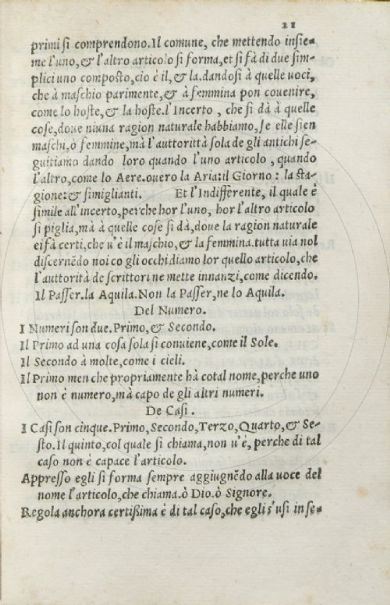 21
primi si comprendono. Il comune, che mettendo insie=
me l'uno, & l'altro articolo si forma, et si fà di due sim=
plici uno composto, cio è il, & la. dandosi à quelle uoci,
che à maschio parimente, & à femmina pon couenire,
come lo hoste, & la hoste. l'Incerto, che si dà à quelle
cose, doue niuna ragion naturale habbiamo, se elle sien
maschi, ò femmine, mà l'auttorittà sola de gli antichi se=
guitiamo dando loro quando l'uno articolo, quando
l'altro, come lo Aere. ouero la Aria: il Giorno: la sta=
gione: & simiglianti. Et l'Indifferẽte, il quale è
simile all'incerto, perche hor l'uno, hor l'altro articolo
si piglia, mà à quelle cose si dà, doue la ragion naturale
ci fà certi, che u'è il maschio, & la femmina. tutta uia nol
discernẽdo noi cõ gli occhi diamo lor quello articolo, che
l'auttorità de scrittori ne mette innanzi, come dicendo.
Il Passer. la Aquila. Non la Passer, ne lo Aquila.
Del Numero.
I Numeri son due. Primo, & Secondo.
Il Primo ad una cosa sola si conuiene, come il Sole.
Il Secondo à molte, come i cieli.
Il Primo men che propriamente hà cotal nome, perche uno
non è numero, mà capo de gli altri numeri.
De Casi.
I Casi son cinque. Primo, Secondo, Terzo, Quarto, & Se=
sto. Il quinto, col quale si chiama, non u'è, perche di tal
caso non è capace l'articolo.
Appresso egli si forma sempre aggiugnẽdo alla uoce del
nome l'articolo, che chiama. ò Dio. ò Signore.
Regola anchora certissima è di tal caso, che egli s'usi in se=